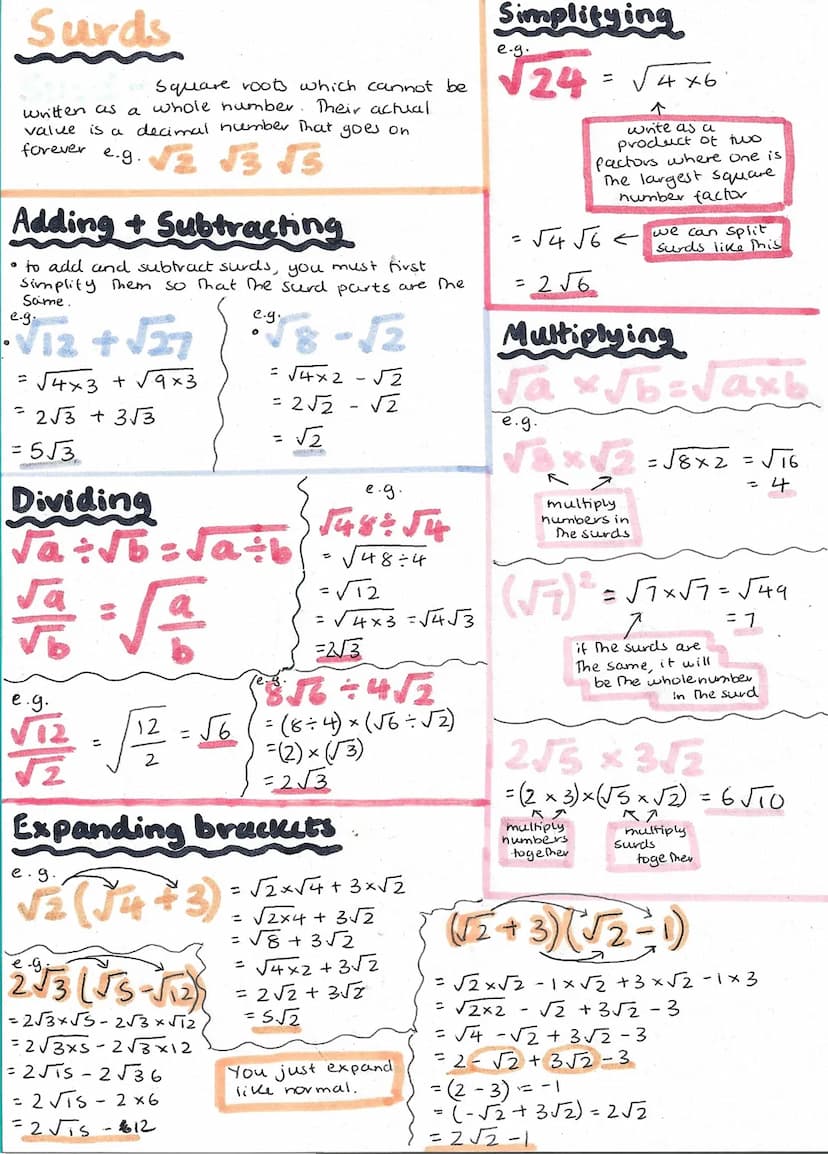 Surds
Square roots which cannot be
written as a whole number. Their actual
value is a decimal number that goes on
forever e.g. √2 √3 √5
Adding + Subtracting
• to add and subtract surds, you must first
simplify them so that the surd parts are the
same.
e.g.
• √12 + √27
= √4×3 + √9×3
= 2√3 + 3√3
= 5√3
e.g.
• √8 - √2
= √4×2 - √2
= 2√2 - √2
= √2
Dividing
√a ÷ √b = √a÷b
√a/√b = √a/b
e.g.
√48 ÷ √4
= √48÷4
= √12
= √4×3 = √4√3
= 2√3
e.g.
√12/√2 = √12/2 = √6
e.g.
8√6 ÷ 4√2
= (8÷4) × (√6 ÷ √2)
= (2) × (√3)
= 2√3
Expanding brackets
e.g.
√2(√4 + 3)
= √2×√4 + 3×√2
= √2×4 + 3√2
= √8 + 3√2
= √4×2 + 3√2
= 2√2 + 3√2
= 5√2
e.g.
2√3(√5 - √12)
= 2√3×√5 - 2√3×√12
= 2√3×5 - 2√3×12
= 2√15 - 2√36
= 2√15 - 2×6
= 2√15 - 12
You just expand
like normal.
Simplifying
e.g.
√24 = √4×6
write as a
product of two
factors where one is
the largest square
number factor
= √4 √6 ← we can split
surds like this
= 2√6
Multiplying
√a × √b = √a×b
e.g.
√8 × √2 = √8×2 = √16
= 4
multiply
numbers in
the surds
(√7)² = √7×√7 = √49
= 7
if the surds are
the same, it will
be the whole number
in the surd
2√5 × 3√2
= (2×3)×(√5×√2) = 6√10
multiply
numbers
together
multiply
surds
together
(√2 + 3)(√2 - 1)
= √2×√2 - 1×√2 + 3×√2 - 1×3
= √2×2 - √2 + 3√2 - 3
= √4 - √2 + 3√2 - 3
= 2 - √2 + 3√2 - 3
= (2 - 3) = -1
= (-√2 + 3√2) = 2√2
= 2√2 - 1